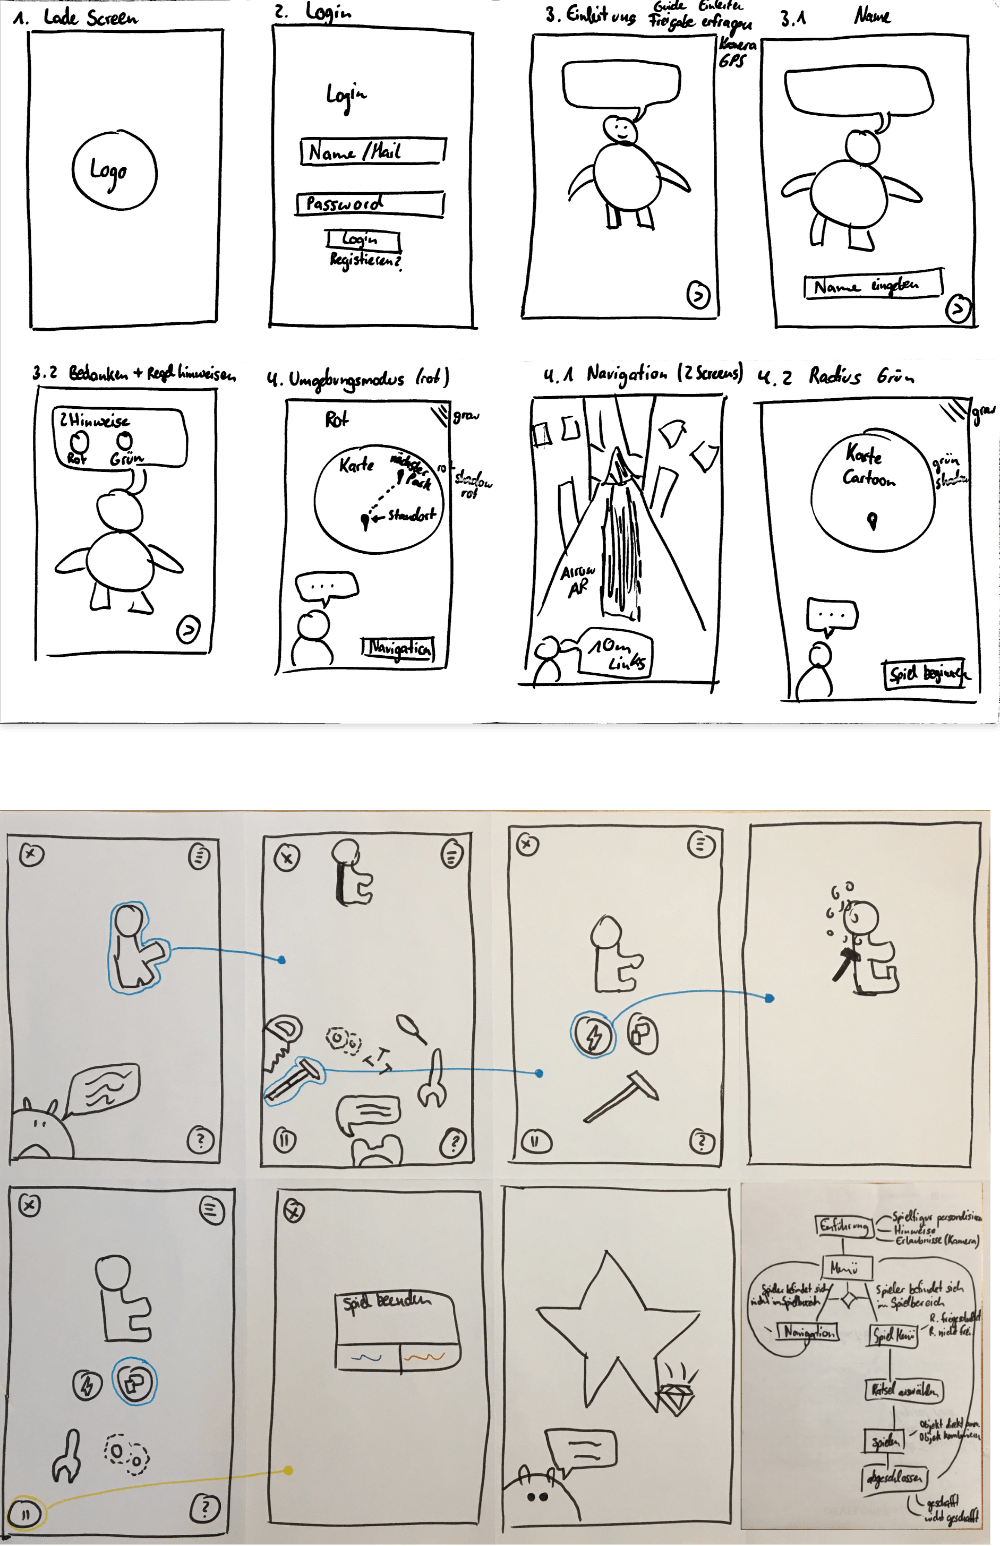 1. Lade Screen
Logo
2. Login
Login
Name / Mail
Password
Login
Registieren?
3. Einleitung
Guide Einleiten
Freigabe erfragen
Kamera
GPS
3.1 Name
Name eingeben
>
3.2 Bedanken + Regelhinweisen
2 Hinweise
Rot Grün
>
4. Umgebungsmodus (rot)
Rot
grau
Karte
nächster
Park
rot
shadow
rot
Standort
...
Navigation
4.1 Navigation (2 Screens)
Arrow
AR
10m
Links
4.2 Radius Grün
grau
Karte
Cartoon
grün
shadow
...
Spiel beginnen
?
?
?
?
Spiel beenden
Einführung
Spielfigur personalisieren
Hinweise
Erlaubnisse (Kamera)
Menü
Spieler befindet sich
nicht im Spielbereich
Spieler befindet sich
im Spielbereich
Navigation
Spiel Menü
R. freigeschaltet
R. nicht frei
Rätsel auswählen
Spielen
Objekt direkt
Objekt kombinieren
abgeschlossen
geschafft
nicht geschafft